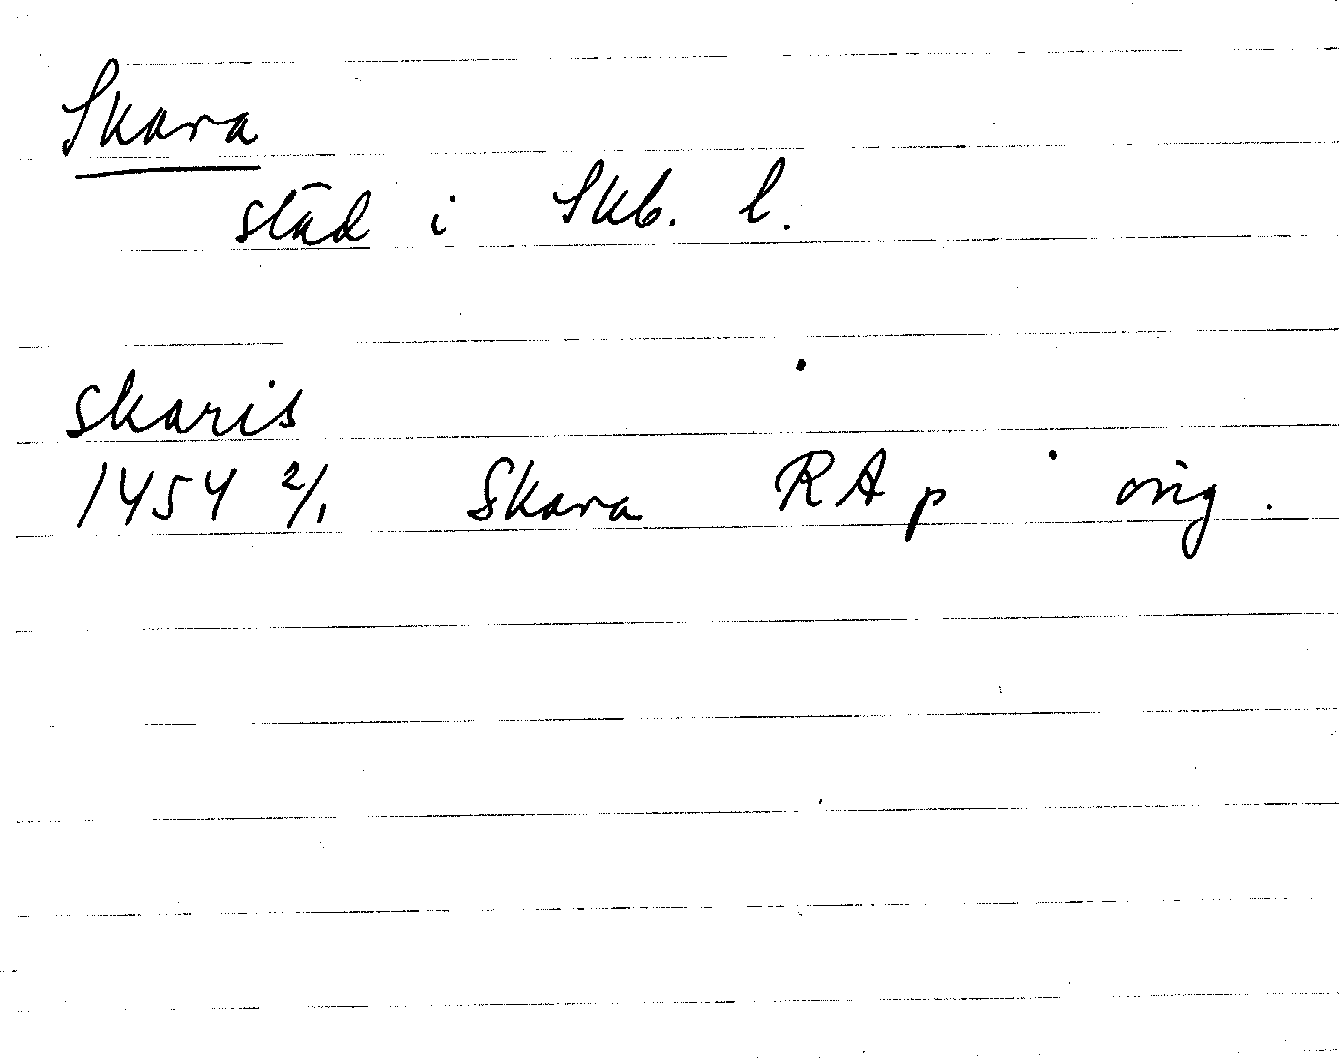 Skara
stad i Skb. l.
skaris
1454 2/1 Skara RAp orig.